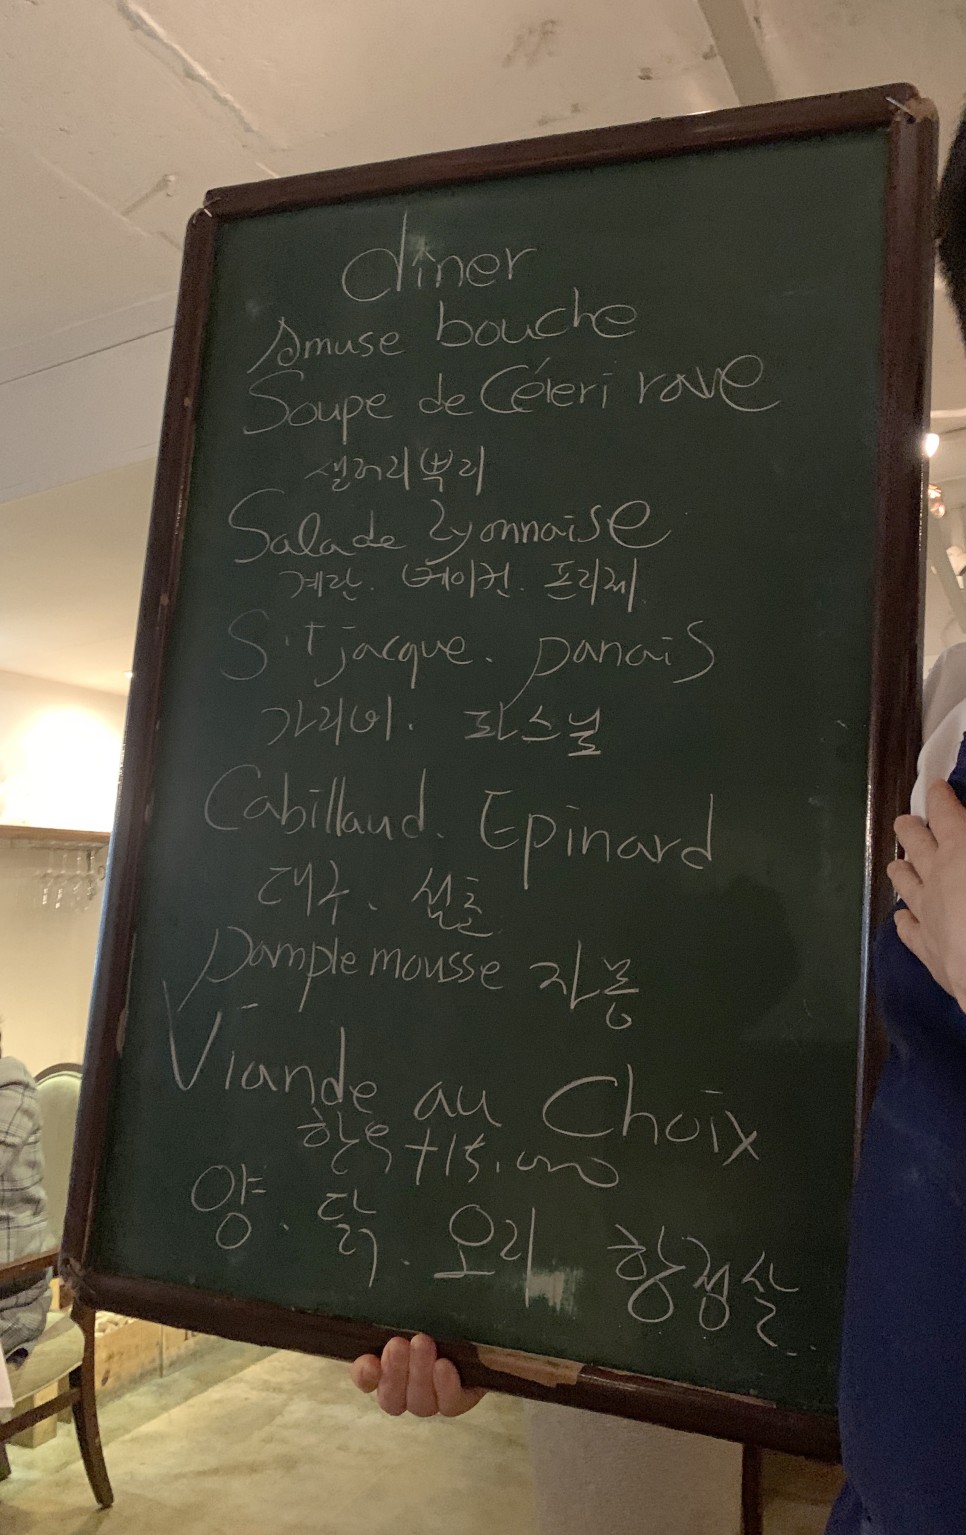 dîner
Amuse bouche
Soupe de Céleri rave
샐러리뿌리
Salade Lyonnaise
계란. 베이컨. 프리제
S.t jacque. panais
가리비. 파스닙
Cabillaud. Epinard
대구. 시금치
Pamplemousse 자몽
Viande au Choix
한우 +15,000
양. 닭. 오리 항정살